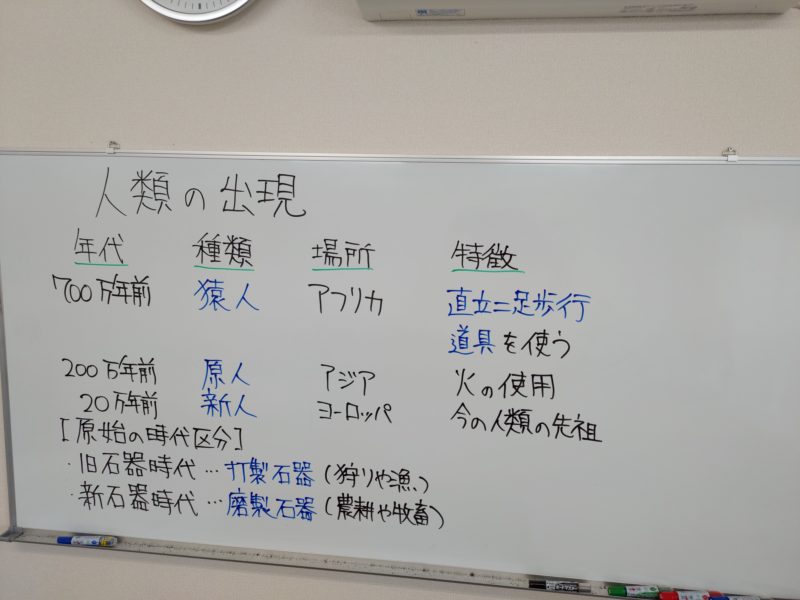 人類の出現
年代 種類 場所 特徴
700万年前 猿人 アフリカ 直立二足歩行
道具を使う
200万年前 原人 アジア 火の使用
20万年前 新人 ヨーロッパ 今の人類の先祖
[原始の時代区分]
・旧石器時代…打製石器(狩りや漁、)
・新石器時代…磨製石器(農耕や牧畜)